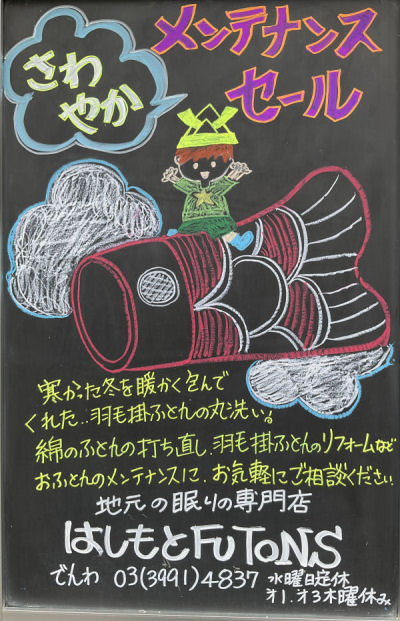 さわ
やか
メンテナンス
セール
寒かった冬を暖かく包んで
くれた..羽毛掛ふとんの丸洗い!
綿のふとんの打ち直し.羽毛掛ふとんのリフォームなど
おふとんのメンテナンスに.お気軽にご相談ください
地元の眠りの専門店
はしもとFUTONS
でんわ 03(3991)4837 水曜日定休
オ1.オ3木曜休み